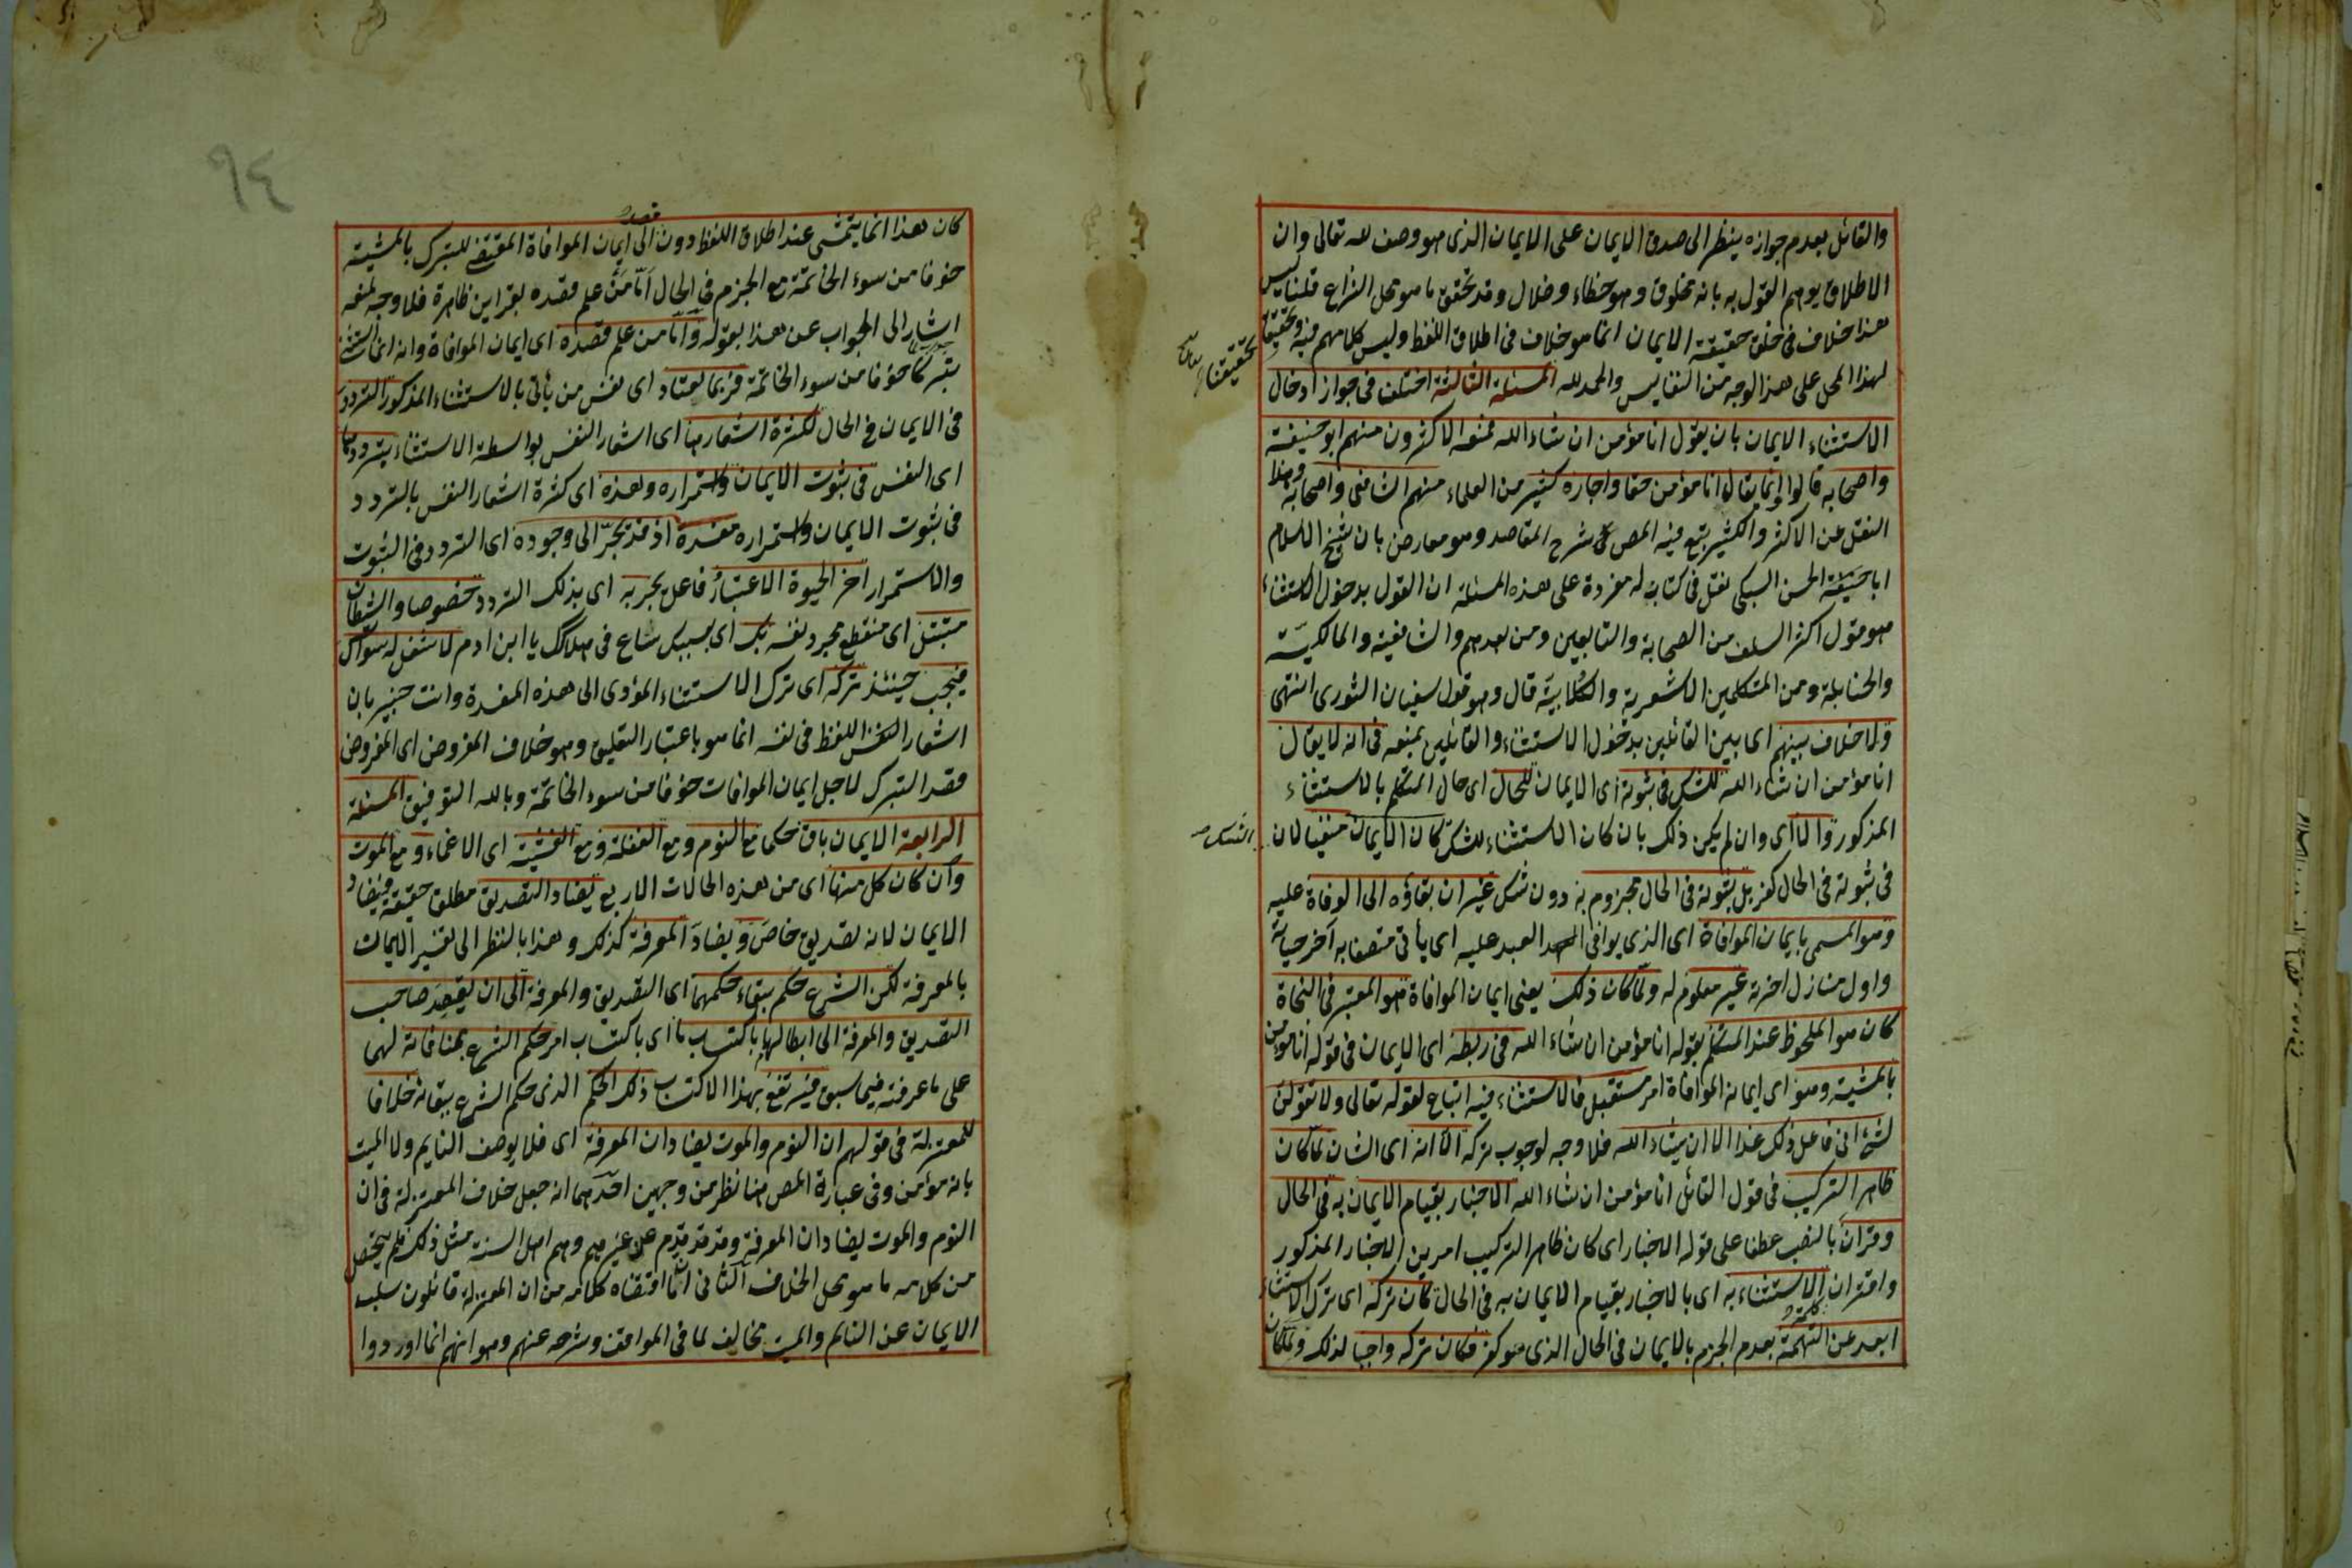 والقائل بعدم جوازه ينظر الى صدق الايمان على الايمان الذى هو وصف لله تعالى وان
الاطلاق يوهم القول به بانه مخلوق وهو خطاء وضلال وقد تحقق ما هو محل النزاع قلنا ليس
هذا خلاف فى خلق حقيقة الايمان انما هو خلاف فى اطلاق اللفظ وليس كلامهم فيه وتحقيقنا
لهذا المحل على هذا الوجه من النفايس والحمد لله المسئلة الثالثة اختلف فى جواز ادخال
الاستثناء الايمان بان يقول انا مؤمن ان شاء الله فمنعه الاكثرون منهم ابو حنيفة
واصحابه قالوا وانما يقال انا مؤمن حقا واجازه كثير من العلماء منهم الشافعى واصحابه وهذا
النقل عن الاكثر والكثير يتبع فيه المص شرح المقاصد وهو معارض بان شيخ الاسلام
ابا الحسن السبكى نقل فى كتاب له مفردة على هذه المسئلة ان القول بدخول الاستثناء
هو قول اكثر السلف من الصحابة والتابعين ومن بعدهم والشافعية والمالكية
والحنابلة ومن المتكلمين الاشعرية والكلابية قال وهو قول سفيان الثورى انتهى
ولا خلاف بينهم اى بين القائلين بدخول الاستثناء والقائلين بمنعه فى انه لا يقال
انا مؤمن ان شاء الله للشك فى ثبوته اى الايمان للحال اى حال المتكلم بالاستثناء
المذكور والا اى وان لم يكن ذلك بان كان الاستثناء للشك كان الايمان منفيا لان
فى ثبوته فى الحال كفر بل ثبوته فى الحال مجزوم به دون شك غير ان بقاؤه الى الوفاة عليه
وهو المسمى بايمان الموافاة اى الذى يوافى العبد عليه اى يأتى متصفا به آخر حياته
واول منازل اخرته غير معلوم له ولما كان ذلك يعنى ايمان الموافاة هو المعتبر فى النجاة
كان هو الملحوظ عند المتكلم بقوله انا مؤمن ان شاء الله فى ربطه اى الايمان فى قوله انا مؤمن
بالمشية وهو اى ايمان الموافاة امر مستقبل فالاستثناء فيه اتباع لقوله تعالى ولا تقولن
لشئ انى فاعل ذلك غدا الا ان يشاء الله فلا وجه لوجوب تركه الا انه اى الشان لما كان
ظاهر التركيب فى قول القائل انا مؤمن ان شاء الله الاخبار بقيام الايمان به فى الحال
وقران بالنصب عطفا على قوله الاخبار اى كان ظاهر التركيب امرين الاخبار المذكور
واقتران الاستثناء به اى بالاخبار بقيام الايمان به فى الحال كان تركه اى ترك الاستثناء
ابعد عن التهمة بعدم الجزم بالايمان فى الحال الذى هو كفر فكان تركه واجبا لذلك ولما كان
تحقيقنا
الشك
٩٤
كان هذا انما يتمشى عند اطلاق اللفظ دون قصد الى ايمان الموافاة المقتضى للتبرك بالمشيئة
خوفا من سوء الخاتمة مع الجزم فى الحال اما من علم قصده بقراين ظاهرة فلا وجه لمنعه
اشار الى الجواب عن هذا بقوله واما من علم قصده اى ايمان الموافاة وانه انما استثنى
تبركا خوفا من سوء الخاتمة فربما يعتاد اى نفس من يأتى بالاستثناء المذكور التردد
فى الايمان فى الحال لكثرة اشعارها اى اشعار النفس بواسطة الاستثناء بترددها
اى النفس فى ثبوت الايمان واستمراره وهذه اى كثرة اشعار النفس بالتردد
فى ثبوت الايمان واستمراره مفسدة اذ قد تجر الى وجوده اى التردد فى الثبوت
والاستمرار آخر الحيوة الاعتياد فاعل تجر به اى بذلك التردد خصوصا والشيطان
متبتل اى منقطع مجرد نفسه بك اى بسببك ساع فى هلاكك يا ابن ادم لا شغل له سواك
فيجب حينئذ تركه اى ترك الاستثناء المؤدى الى هذه المفسدة وانت خبير بان
اشعار اللفظ فى نفسه انما هو باعتبار التعليق وهو خلاف المفروض اى المفروض
قصد التبرك لاجل ايمان الموافات خوفا من سوء الخاتمة وبالله التوفيق المسئلة
الرابعة الايمان باق حكما مع النوم ومع الغفلة ومع الغشية اى الاغماء ومع الموت
وان كان كل منها اى من هذه الحالات الاربع يضاد التصديق مطلق حقيقة فيضاد
الايمان لانه تصديق خاص ويضاد المعرفة كذلك وهذا بالنظر الى تفسير الايمان
بالمعرفة لكن الشرع حكم ببقاء حكمهما اى التصديق والمعرفة الى ان يقصد صاحب
التصديق والمعرفة الى ابطالهما باكتساب ما اى باكتساب امر حكم الشرع بمنافاته لهما
على ما عرفته فيما سبق فيرتفع بهذا الاكتساب ذلك الحكم الذى حكم الشرع ببقائه خلافا
للمعتزلة فى قولهم ان النوم والموت يضادان المعرفة اى فلا يوصف النايم ولا الميت
بانه مؤمن وفى عبارة المص هنا نظر من وجهين احدهما انه جعل خلاف المعتزلة فى ان
النوم والموت يضادان المعرفة وقد قدم عن غيرهم وهم اهل السنة مثل ذلك فلم يتحصل
من كلامه ما هو محل الخلاف الثانى ان ما اقتضاه كلامه من ان المعتزلة قائلون بسلب
الايمان عن النائم والميت مخالف لما فى المواقف وشرحه عنهم وهو انهم انما اوردوا